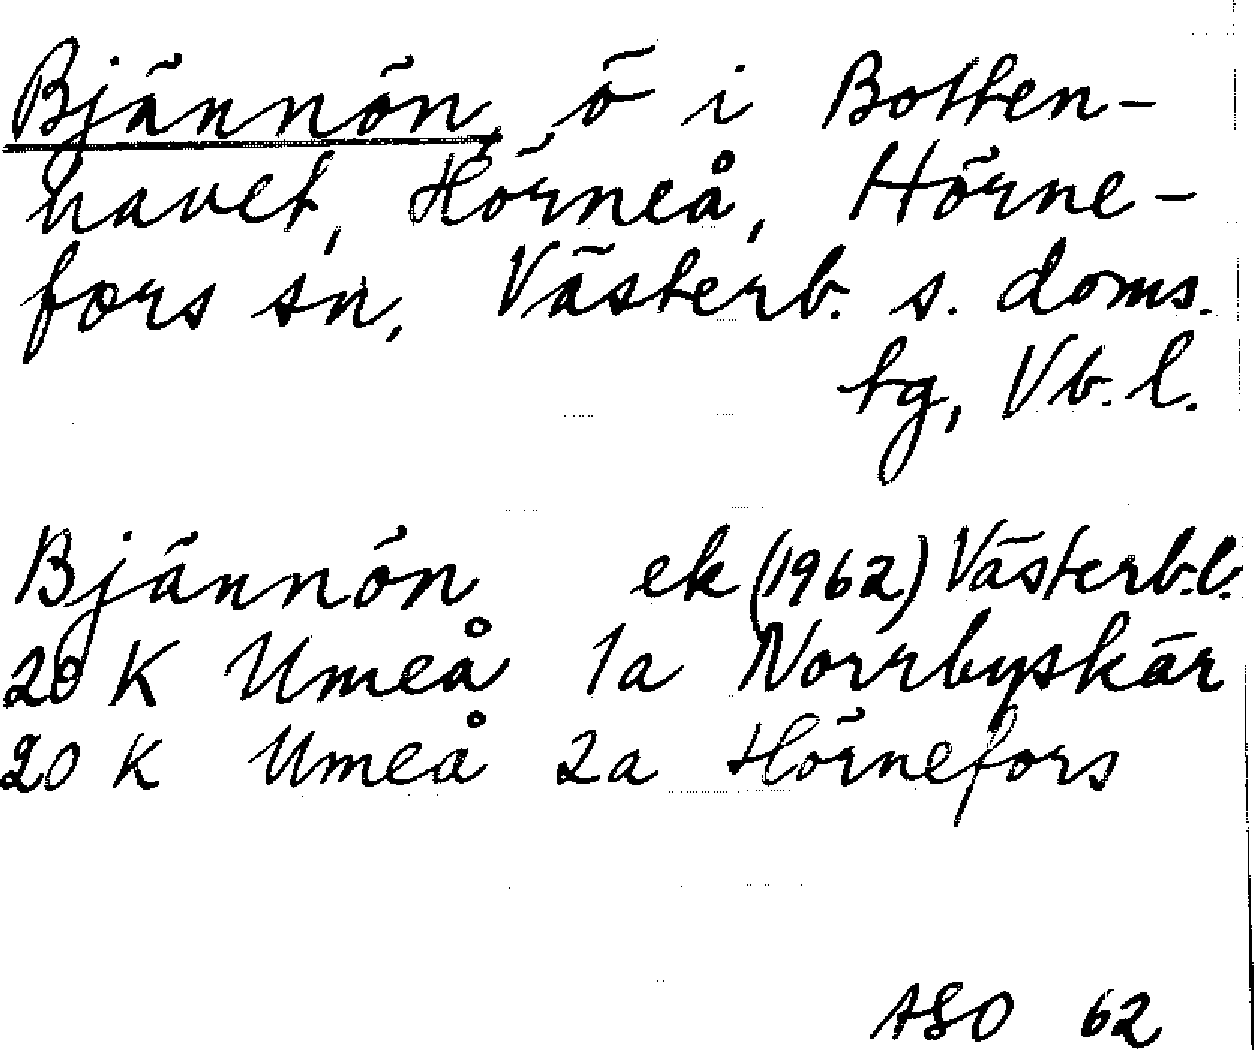 Bjännön, ö i Botten-
havet, Hörneå, Hörne-
fors sn, Västerb. s. doms.
tg, Vb. l.
Bjännön ek (1962) Västerb.l.
20 K Umeå 1a Norrbyskär
20 K Umeå 2a Hörnefors
ASO 62